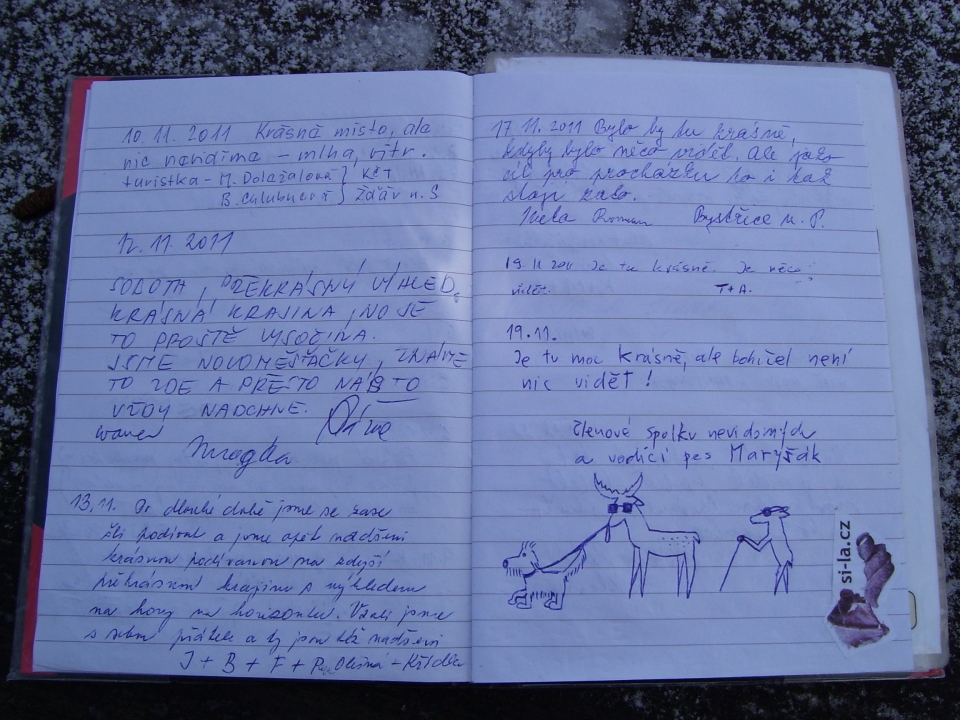 10.11. 2011 Krásná místo, ale
nic nevidíme - mlha, vítr.
turistka - M. Doležalová } KČT
B. Žďár n. S
12. 11. 2011
SOBOTA, PŘEKRÁSNÝ VÝHLED,
KRÁSNÁ KRAJINA, NO JE
TO PROSTĚ VYSOČINA.
JSME NOVOMĚŠŤÁČKY, ZNÁME
TO ZDE A PŘESTO NÁS TO
VŽDY NADCHNE.
13.11. Po dlouhé době jsme se zase
šli podívat a jsme opět nadšeni
krásnou podívanou na zdejší
překrásnou krajinu s výhledem
na hory na horizontu. Vzali jsme
s sebou přátele a ty jsou též nadšeni
J + B + F + P Olešná - Křídla
17 11. 2011 Bylo by tu krásně,
kdyby bylo něco vidět. Ale jako
cíl pro procházku to i tak
stojí zato.
Iveta Roman Bystřice n. P.
19. 11 2011 Je tu krásně. Je něco
vidět. T+A.
19.11.
Je tu moc krásně, ale bohužel není
nic vidět!
členové spolku nevidomých
a vodící pes Maryšák
si-la.cz